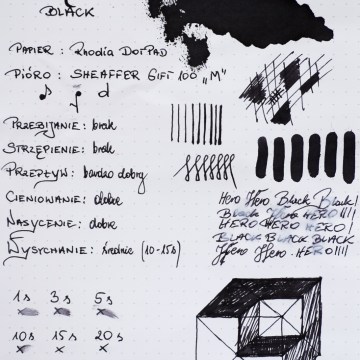 BLACK
PAPIER : Rhodia DotPAD
PIÓRO : SHEAFFER GIFT 100 „M"
PRZEBIJANIE: brak
STRZĘPIENIE: brak
PRZEPŁYW: bardzo dobry
CIENIOWANIE: dobre
NASYCENIE: dobre
WYSYCHANIE: średnie (10-15s)
Hero Hero Black Black!
Black Hero HERO!!!!
HERO HERO HERO!
BLACK BLACK BLACK
Hero Hero HERO!!!!
1s 3s 5s
x x x
10s 15s 20s
x x x